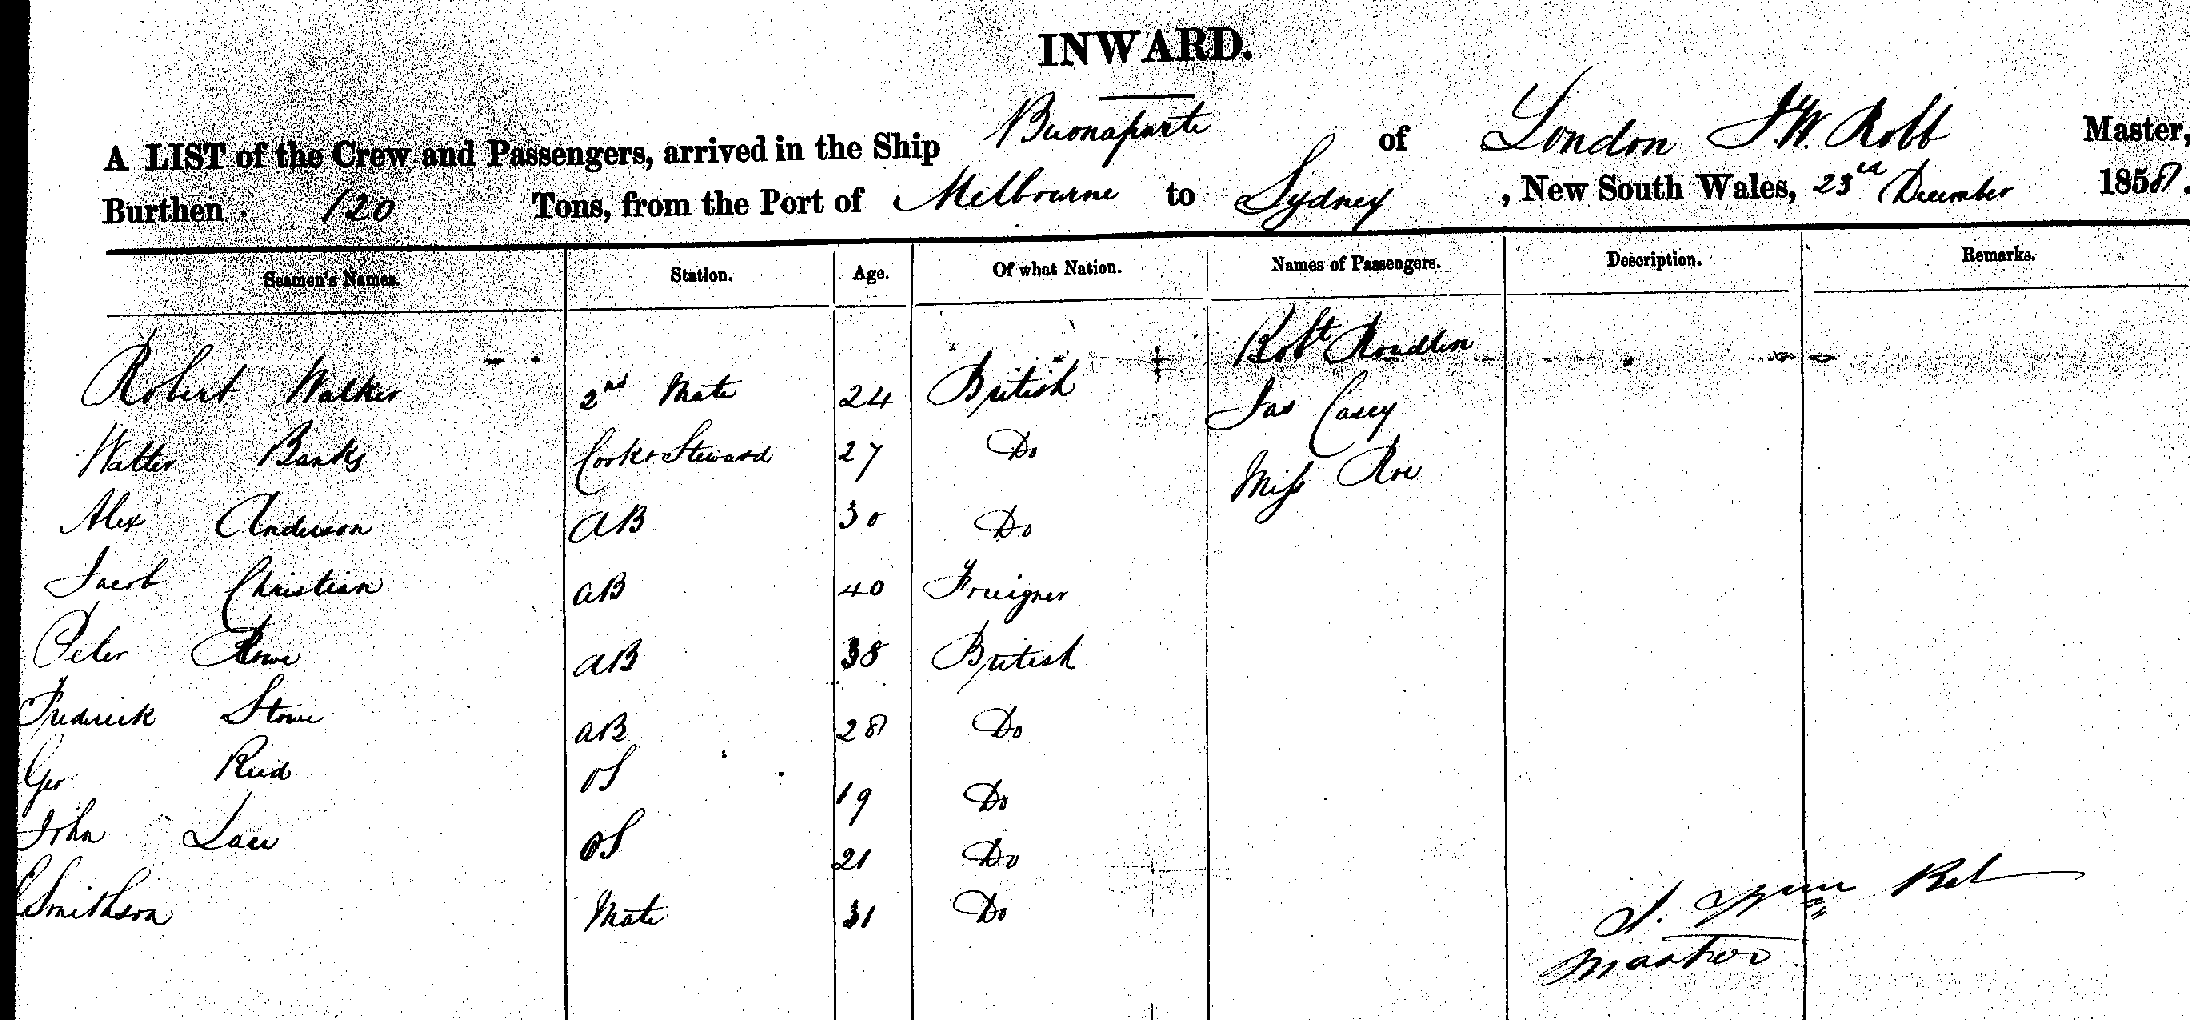 INWARD.
A LIST of the Crew and Passengers, arrived in the Ship Buonaparte of London J. W. Robb Master,
Burthen 120 Tons, from the Port of Melbourne to Sydney, New South Wales, 23rd December 1858.
Seamen's Names. Station. Age. Of what Nation. Names of Passengers. Description. Remarks.
Robert Walker 2nd Mate 24 British Robt
Walter Banks Cook & Steward 27 Do Jas Casey
Alex Anderson AB 30 Do Miss Roe
Jacob Christian AB 40 Foreigner
Peter Rowe AB 38 British
Frederick Stowe AB 28 Do
Geo Reid OS 19 Do
John Law OS 21 Do
Smithson Mate 31 Do
Master